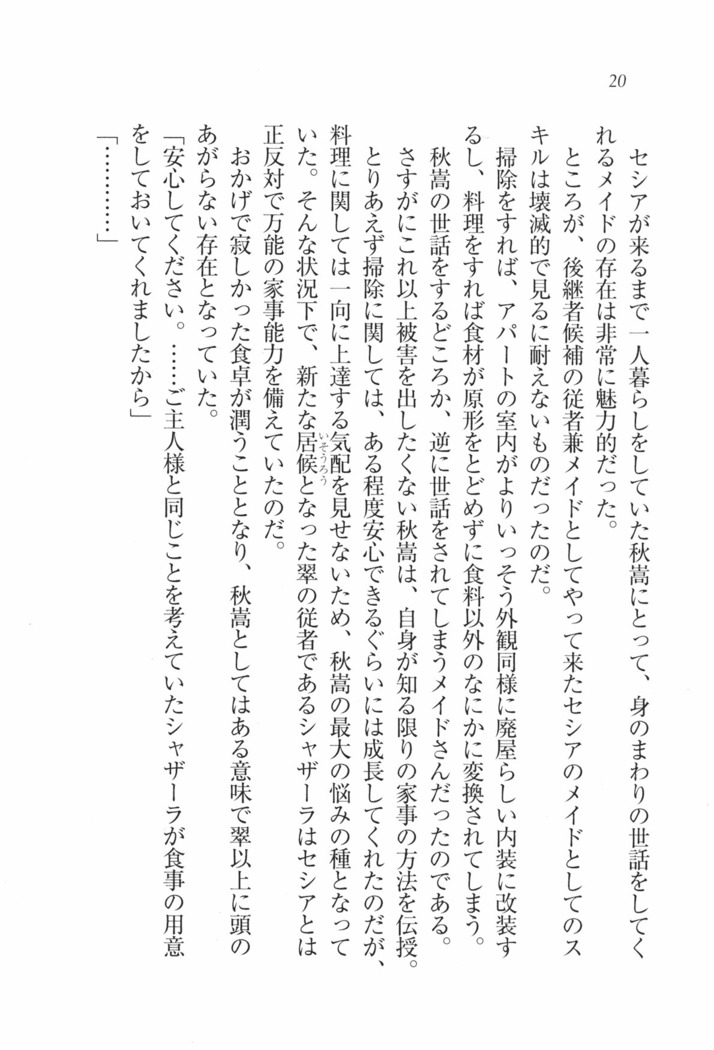 20
セシアが来るまで一人暮らしをしていた秋嵩にとって、身のまわりの世話をしてく
れるメイドの存在は非常に魅力的だった。
ところが、後継者候補の従者兼メイドとしてやって来たセシアのメイドとしてのス
キルは壊滅的で見るに耐えないものだったのだ。
掃除をすれば、アパートの室内がよりいっそう外観同様に廃屋らしい内装に改装す
るし、料理をすれば食材が原形をとどめずに食料以外のなにかに変換されてしまう。
秋嵩の世話をするどころか、逆に世話をされてしまうメイドさんだったのである。
さすがにこれ以上被害を出したくない秋嵩は、自身が知る限りの家事の方法を伝授。
とりあえず掃除に関しては、ある程度安心できるぐらいには成長してくれたのだが、
料理に関しては一向に上達する気配を見せないため、秋嵩の最大の悩みの種となって
いた。そんな状況下で、新たな居候いそうろうとなった翠の従者であるシャザーラはセシアとは
正反対で万能の家事能力を備えていたのだ。
おかげで寂しかった食卓が潤うこととなり、秋嵩としてはある意味で翠以上に頭の
あがらない存在となっていた。
「安心してください。……ご主人様と同じことを考えていたシャザーラが食事の用意
をしておいてくれましたから」
「…………」